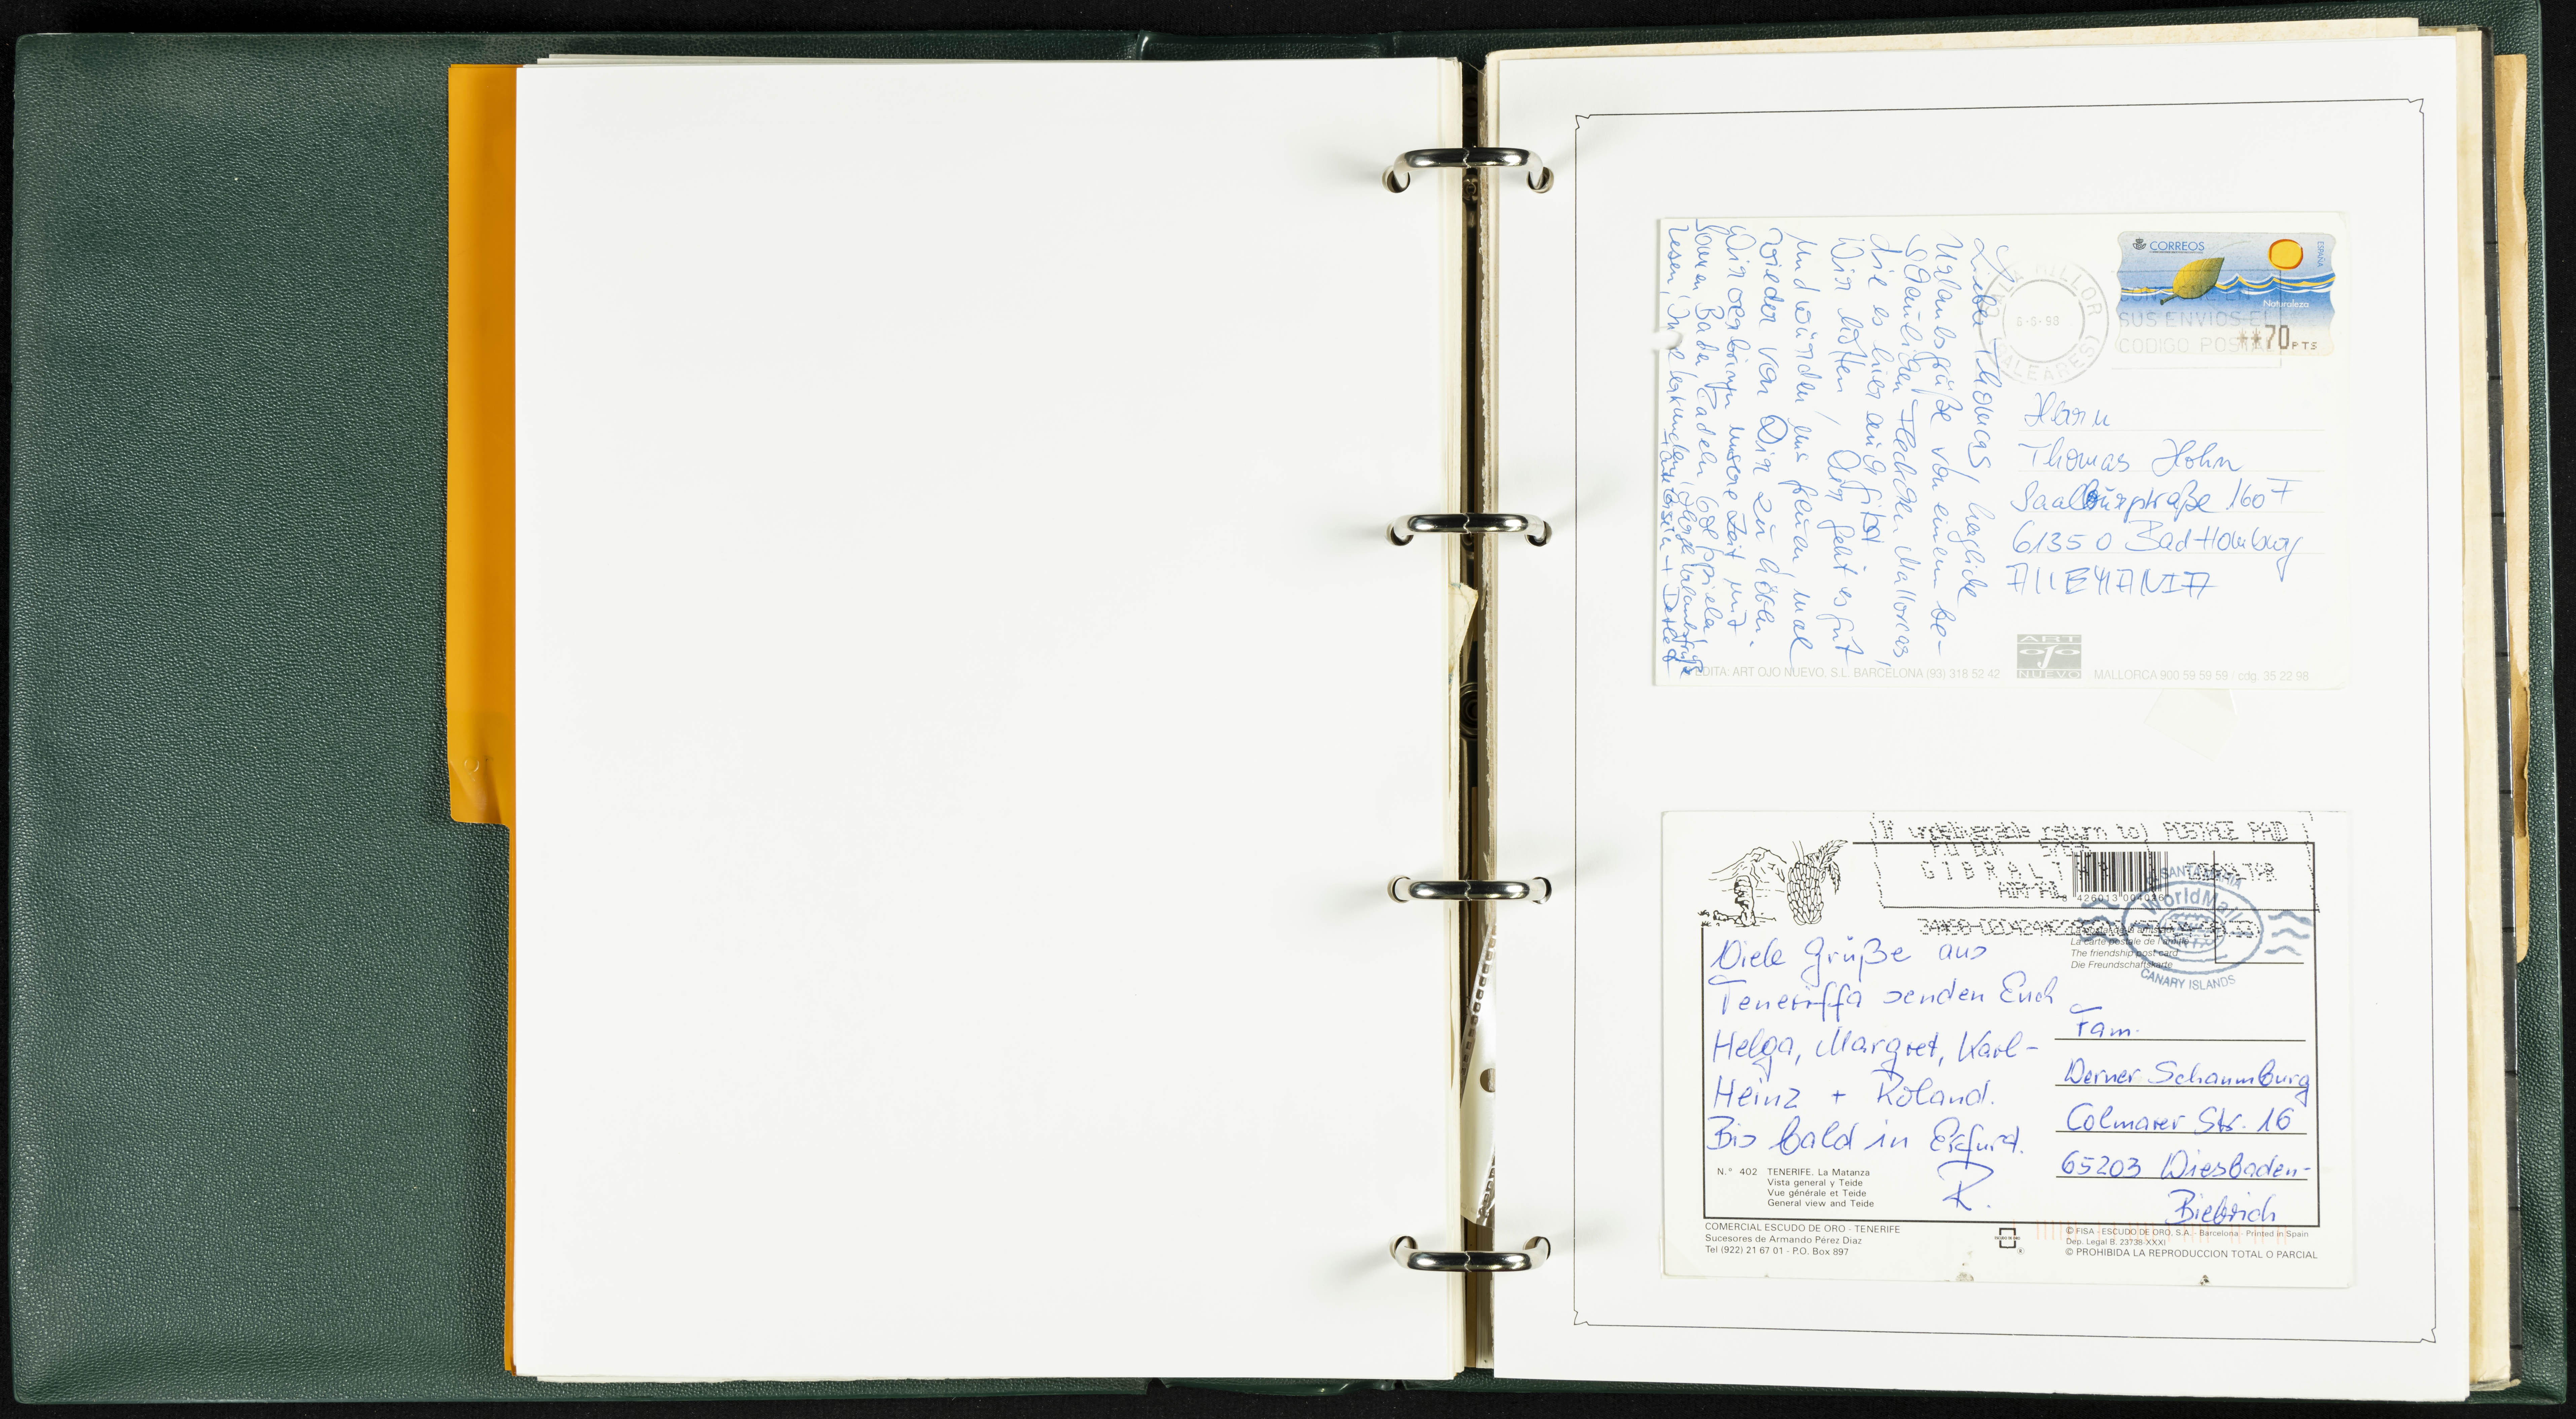 CORREOS
ESPAÑA
Naturaleza
SUS ENVIOS EL
CODIGO POSTAL
**70 PTS
CALA MILLOR
5-5-98
(BALEARES)
Lieber Thomas, herzliche
Urlaubsgrüße von einem be-
schaulichen Fleckchen Mallorcas
die es hier auch gibt.
Wir hoffen, Dir geht es gut
und würden uns freuen, mal
wieder von Dir zu hören.
Wir verbringen unsere Zeit mit
Baden, Radeln,
Lesen, Inselerkundung, Urlaubsgrüße
+ Detlef
Herrn
Thomas Hohn
Saalburgstraße 160 F
61350 Bad Homburg
ALLEMANIA
EDITA: ART OJO NUEVO, S.L. BARCELONA (93) 318 52 42
ART
OJO
NUEVO
MALLORCA 900 59 59 59 / cdg. 35 22 98
(If undeliverable return to) POSTAGE PAID
PO BOX
GIBRALTAR
AIRMAIL
8 426013 004026
SANTA MARIA
WorldMail
CANARY ISLANDS
La carte postale de l'amitié
The friendship post card
Die Freundschaftskarte
Viele Grüße aus
Teneriffa senden Euch
Helga, Margret, Karl-
Heinz + Roland.
Bis bald in Erfurt.
R.
Fam.
Werner Schaumburg
Colmarer Str. 16
65203 Wiesbaden-
Biebrich
N.° 402 TENERIFE. La Matanza
Vista general y Teide
Vue générale et Teide
General view and Teide
COMERCIAL ESCUDO DE ORO - TENERIFE
Sucesores de Armando Pérez Díaz
Tel (922) 21 67 01 - P.O. Box 897
© FISA - ESCUDO DE ORO, S.A. - Barcelona - Printed in Spain
Dep. Legal B. 23738-XXXI
© PROHIBIDA LA REPRODUCCION TOTAL O PARCIAL